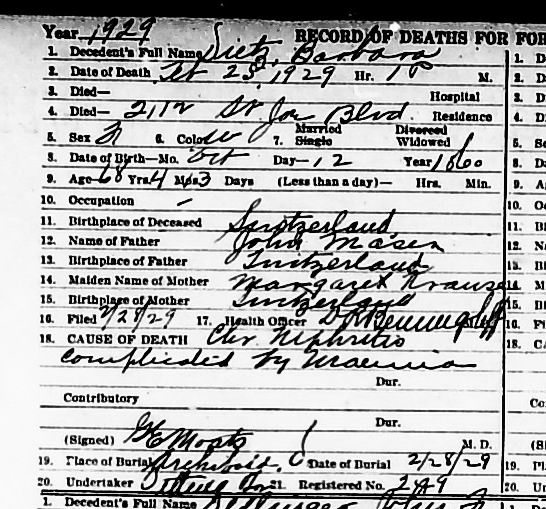 Year 1929 RECORD OF DEATHS FOR FOR
1. Decedent's Full Name Dietz, Barbara
2. Date of Death Feb 25, 1929 Hr. 1 P M.
3. Died— Hospital
4. Died— 2112 St Joe Blvd. Residence
5. Sex F 6. Color W 7. Married Single Divorced Widowed
8. Date of Birth—Mo. Oct Day— 12 Year 1860
9. Age 68 Yrs. 4 Mos. 13 Days (Less than a day)— Hrs. Min.
10. Occupation –
11. Birthplace of Deceased Switzerland
12. Name of Father John
13. Birthplace of Father Switzerland
14. Maiden Name of Mother Margaret
15. Birthplace of Mother Switzerland
16. Filed 2/28/29 17. Health Officer
18. CAUSE OF DEATH Chr Nephritis
complicated by Uraemia
Dur.
Contributory
Dur.
(Signed) M. D.
19. Place of Burial Date of Burial 2/28/29
20. Undertaker 21. Registered No. 249
1. Decedent's Full Name